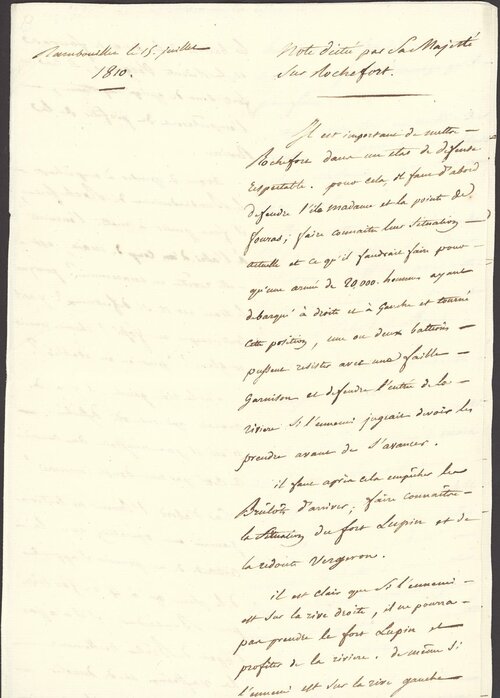 Rambouillet le 15. juillet
1810.
Note dictée par Sa Majesté
Sur Rochefort.
Il est important de mettre
Rochefort dans un état de défense
respectable. pour cela, il faut d'abord
défendre l'île madame et la pointe de
fouras; faire connaitre leur Situation
actuelle et ce qu'il faudrait faire pour
qu'une armée de 20,000. hommes ayant
debarqué à droite et à Gauche et tourné
cette position, une ou deux batteries
pussent resister avec une faible
Garnison et defendre l'entrée de la
riviere si l'ennemi jugeait devoir les
prendre avant de S'avancer.
il faut après cela empêcher les
Brûlots d'arriver; faire connaître
la Situation du fort Lupin et de
la redoute Vergeron.
il est clair que Si l'ennemi
est sur la rive droite, il ne pourra
pas prendre le fort Lupin et
profiter de la riviere. de même si
l'ennemi est sur la rive gauche